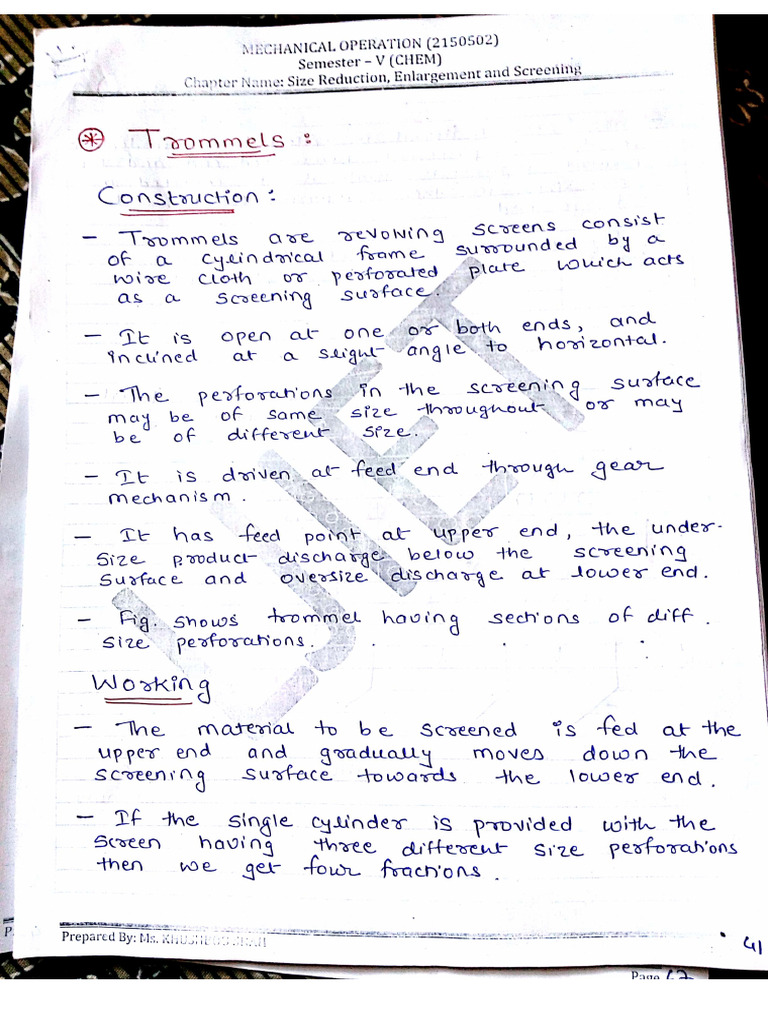 MECHANICAL OPERATION (2150502)
Semester – V (CHEM)
Chapter Name: Size Reduction, Enlargement and Screening
Trommels :
Construction :
– Trommels are revolving screens consist
of a cylindrical frame surrounded by a
wire cloth or perforated plate which acts
as a screening surface.
– It is open at one or both ends, and
inclined at a slight angle to horizontal.
– The perforations in the screening surface
may be of same size throughout or may
be of different size.
– It is driven at feed end through gear
mechanism.
– It has feed point at upper end, the under-
size product discharge below the screening
surface and oversize discharge at lower end.
– Fig. shows trommel having sections of diff.
size perforations.
Working
– The material to be screened is fed at the
upper end and gradually moves down the
screening surface towards the lower end.
– If the single cylinder is provided with the
screen having three different size perforations
then we get four fractions.
LJIET
Prepared By: Ms.
41
Page